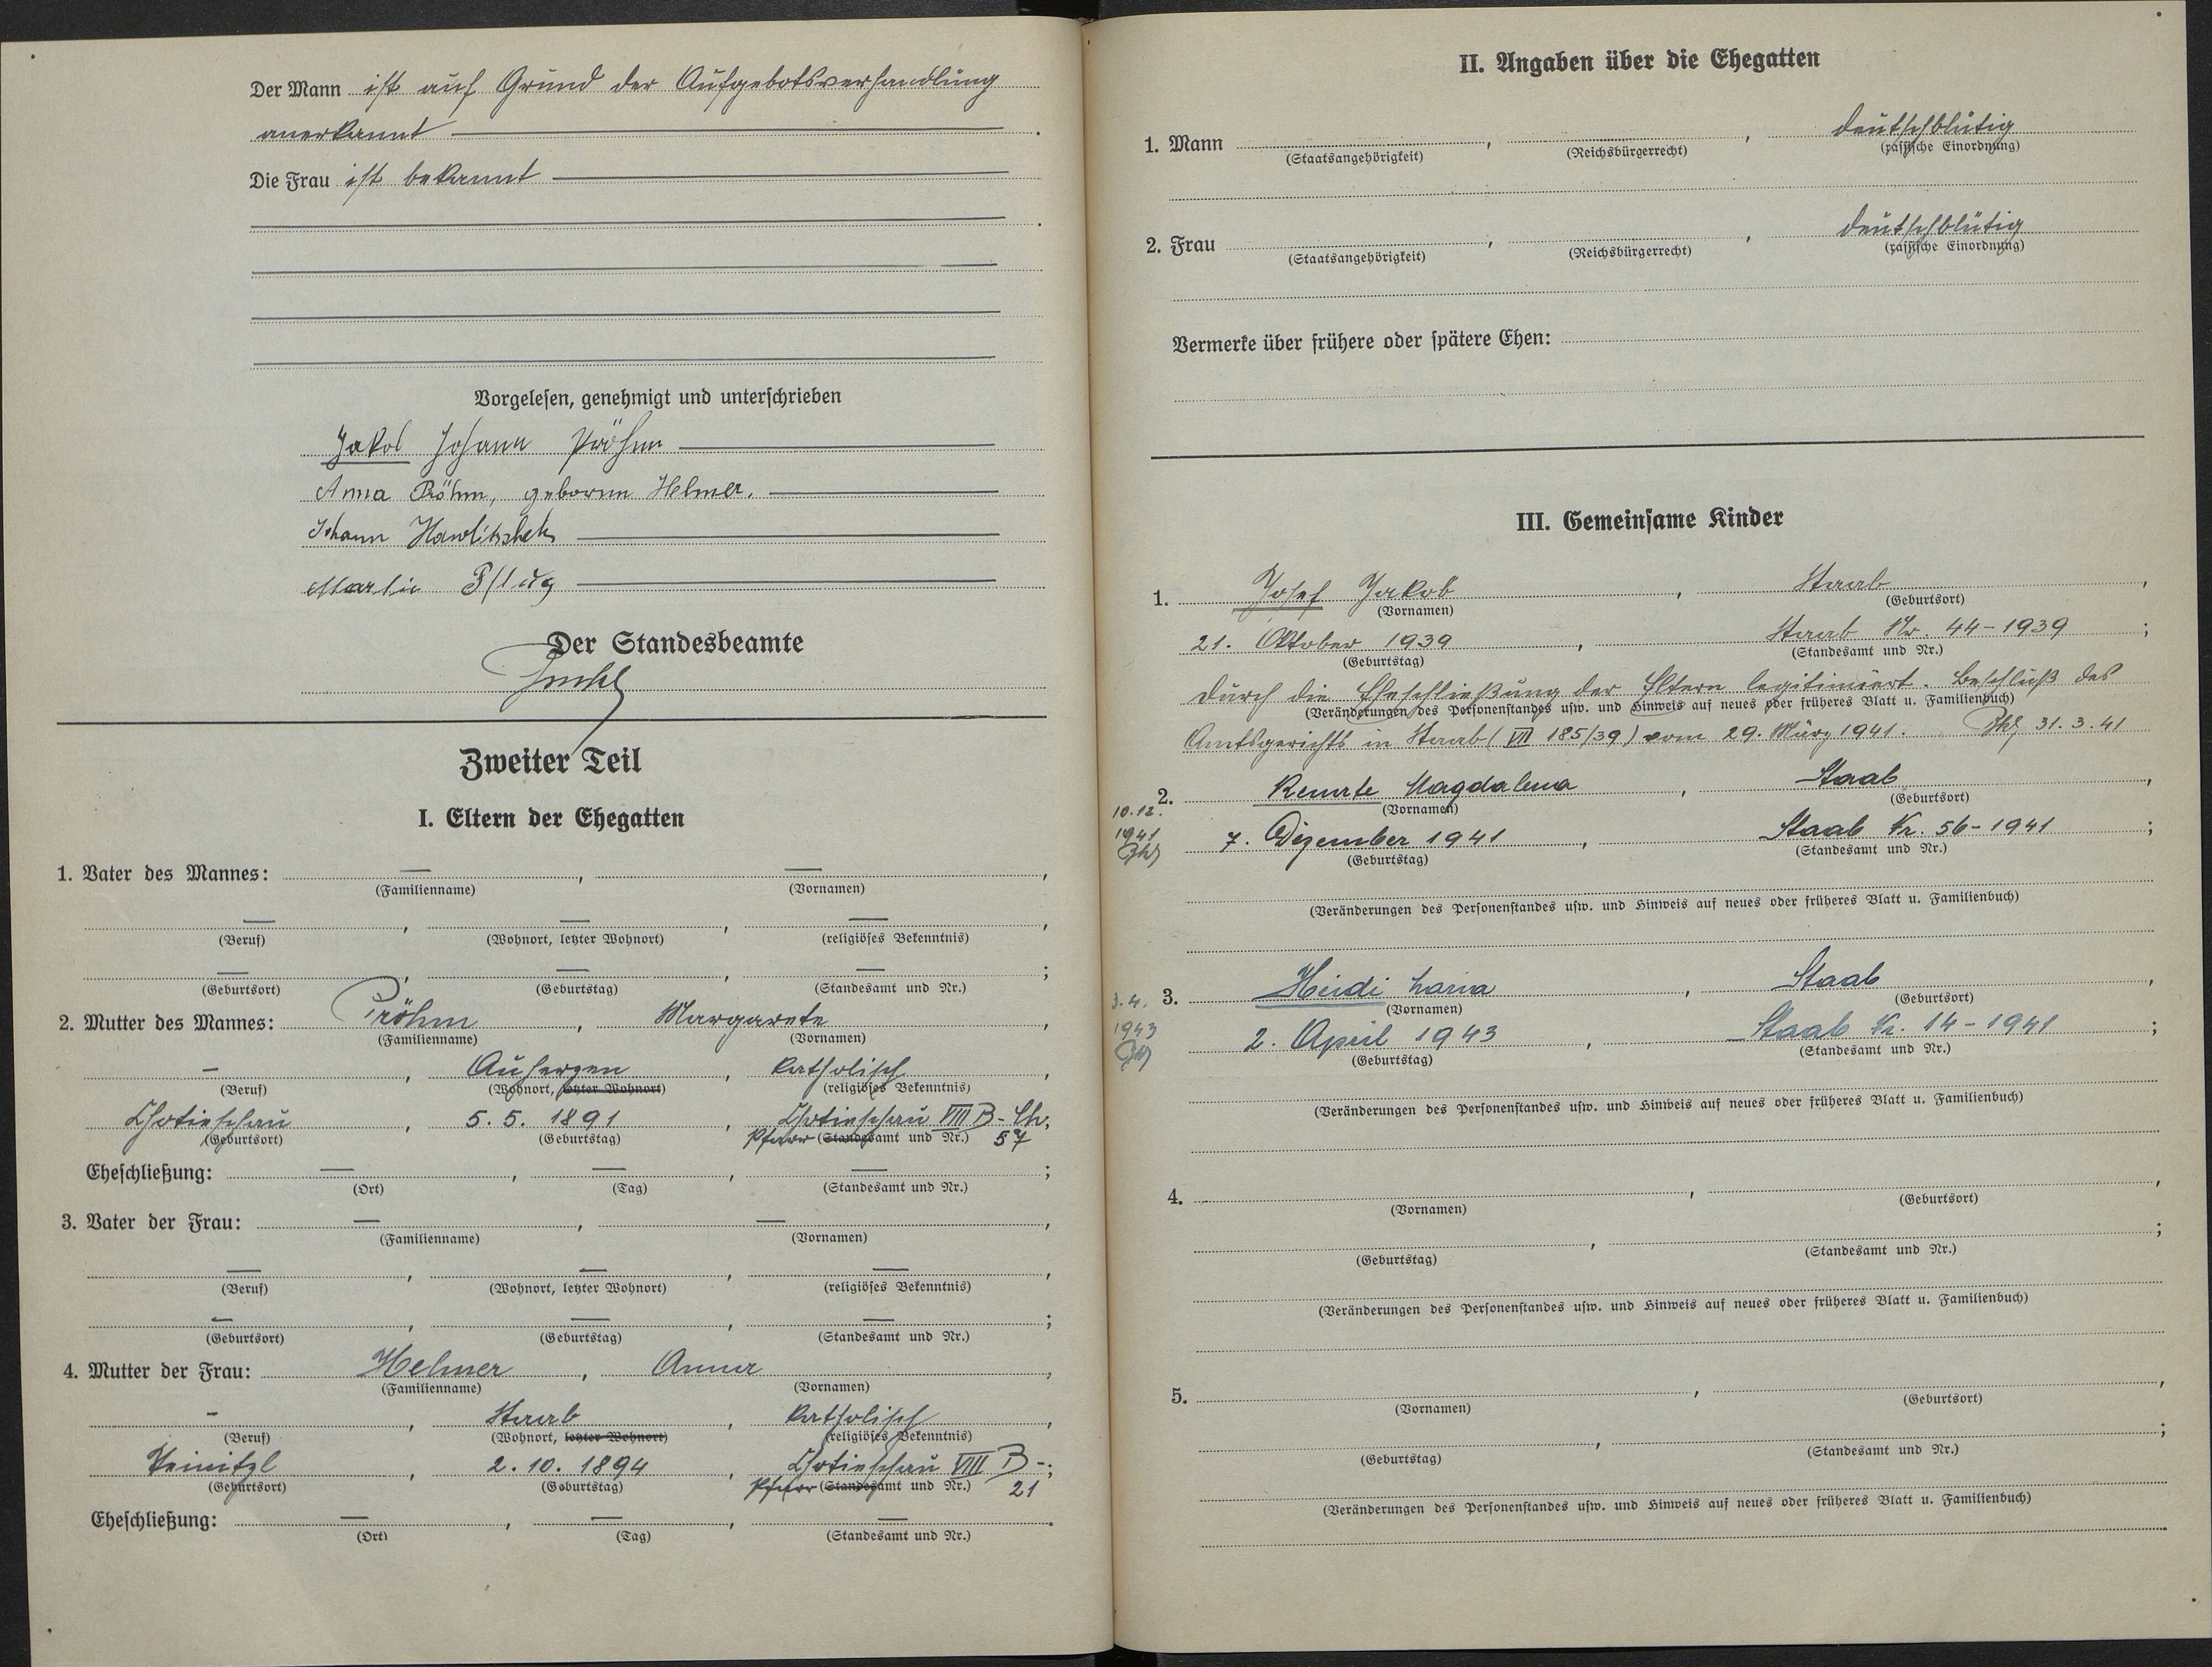 Der Mann ist auf Grund der Aufgebotsverhandlung
anerkannt.
Die Frau ist bekannt
Vorgelesen, genehmigt und unterschrieben
Jakob Johann Pröhm
Anna Pröhm, geborene Helmer.
Johann Hawlitschek
Martin Pflug
Der Standesbeamte
Zweiter Teil
I. Eltern der Ehegatten
1. Vater des Mannes: —, —,
(Familienname) (Vornamen)
—, —, —,
(Beruf) (Wohnort, letzter Wohnort) (religiöses Bekenntnis)
—, —, —;
(Geburtsort) (Geburtstag) (Standesamt und Nr.)
2. Mutter des Mannes: Pröhm, Margarete,
(Familienname) (Vornamen)
–, Auherzen, katholisch,
(Beruf) (Wohnort, letzter Wohnort) (religiöses Bekenntnis)
Chotieschau, 5. 5. 1891, Chotieschau VIII B - Ch;
(Geburtsort) (Geburtstag) Pfarr (Standesamt und Nr.) 57
Eheschließung: —, —, —;
(Ort) (Tag) (Standesamt und Nr.)
3. Vater der Frau: —, —,
(Familienname) (Vornamen)
—, —, —,
(Beruf) (Wohnort, letzter Wohnort) (religiöses Bekenntnis)
–, —, —;
(Geburtsort) (Geburtstag) (Standesamt und Nr.)
4. Mutter der Frau: Helmer, Anna,
(Familienname) (Vornamen)
–, Staab, katholisch,
(Beruf) (Wohnort, letzter Wohnort) (religiöses Bekenntnis)
2. 10. 1894, Chotieschau VIII B -;
(Geburtsort) (Geburtstag) Pfarr (Standesamt und Nr.) 21
Eheschließung: —, —, —.
(Ort) (Tag) (Standesamt und Nr.)
II. Angaben über die Ehegatten
1. Mann , , deutschblütig
(Staatsangehörigkeit) (Reichsbürgerrecht) (rassische Einordnung)
2. Frau , , deutschblütig
(Staatsangehörigkeit) (Reichsbürgerrecht) (rassische Einordnung)
Vermerke über frühere oder spätere Ehen:
III. Gemeinsame Kinder
1. Josef Jakob, Staab,
(Vornamen) (Geburtsort)
21. Oktober 1939, Staab Nr. 44-1939;
(Geburtstag) (Standesamt und Nr.)
durch die Eheschließung der Eltern legitimiert. Beschluß des
(Veränderungen des Personenstandes usw. und Hinweis auf neues oder früheres Blatt u. Familienbuch)
Amtsgerichts in Staab (VII 185/39) vom 29. März 1941. 31.3.41
2. Renate Magdalena, Staab,
10.12. (Vornamen) (Geburtsort)
1941 7. Dezember 1941, Staab Nr. 56-1941;
(Geburtstag) (Standesamt und Nr.)
(Veränderungen des Personenstandes usw. und Hinweis auf neues oder früheres Blatt u. Familienbuch)
3.4. 3. Heidi Maria, Staab,
(Vornamen) (Geburtsort)
1943 2. April 1943, Staab Nr. 14-1941;
(Geburtstag) (Standesamt und Nr.)
(Veränderungen des Personenstandes usw. und Hinweis auf neues oder früheres Blatt u. Familienbuch)
4. , ,
(Vornamen) (Geburtsort)
, ;
(Geburtstag) (Standesamt und Nr.)
(Veränderungen des Personenstandes usw. und Hinweis auf neues oder früheres Blatt u. Familienbuch)
5. , ,
(Vornamen) (Geburtsort)
, ;
(Geburtstag) (Standesamt und Nr.)
(Veränderungen des Personenstandes usw. und Hinweis auf neues oder früheres Blatt u. Familienbuch)